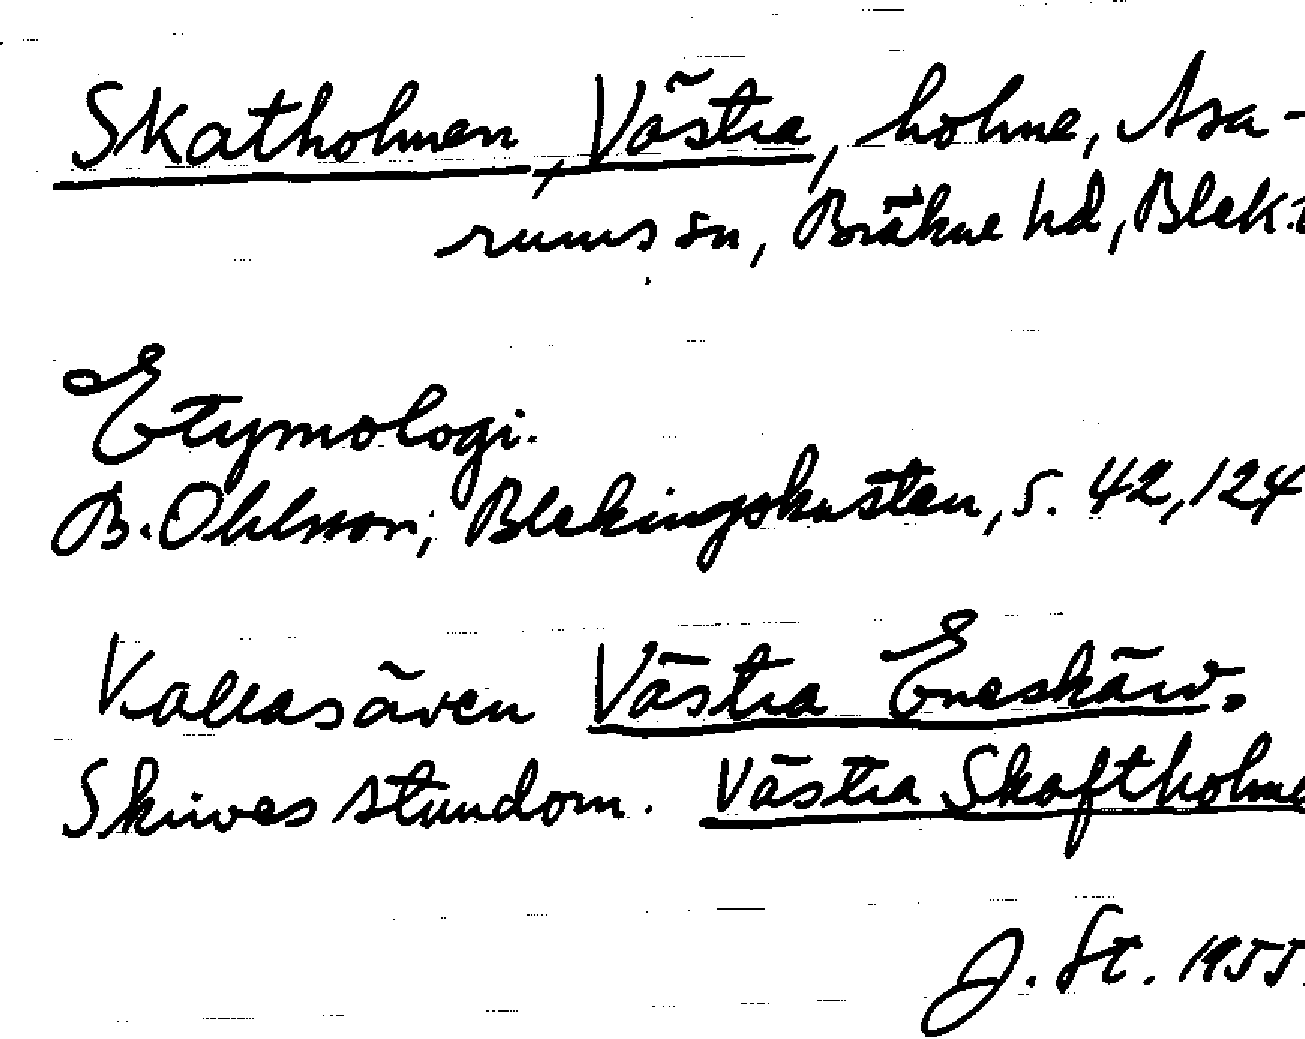 Skatholmen, Västra, holme, Asa-
rums sn, Bräkne hd, Blek.
Etymologi.
B. Ohlsson, Blekingskusten, s. 42, 124
Kallas även Västra Eneskärv.
Skrives stundom. Västra Skaftholme
J. St. 1955.